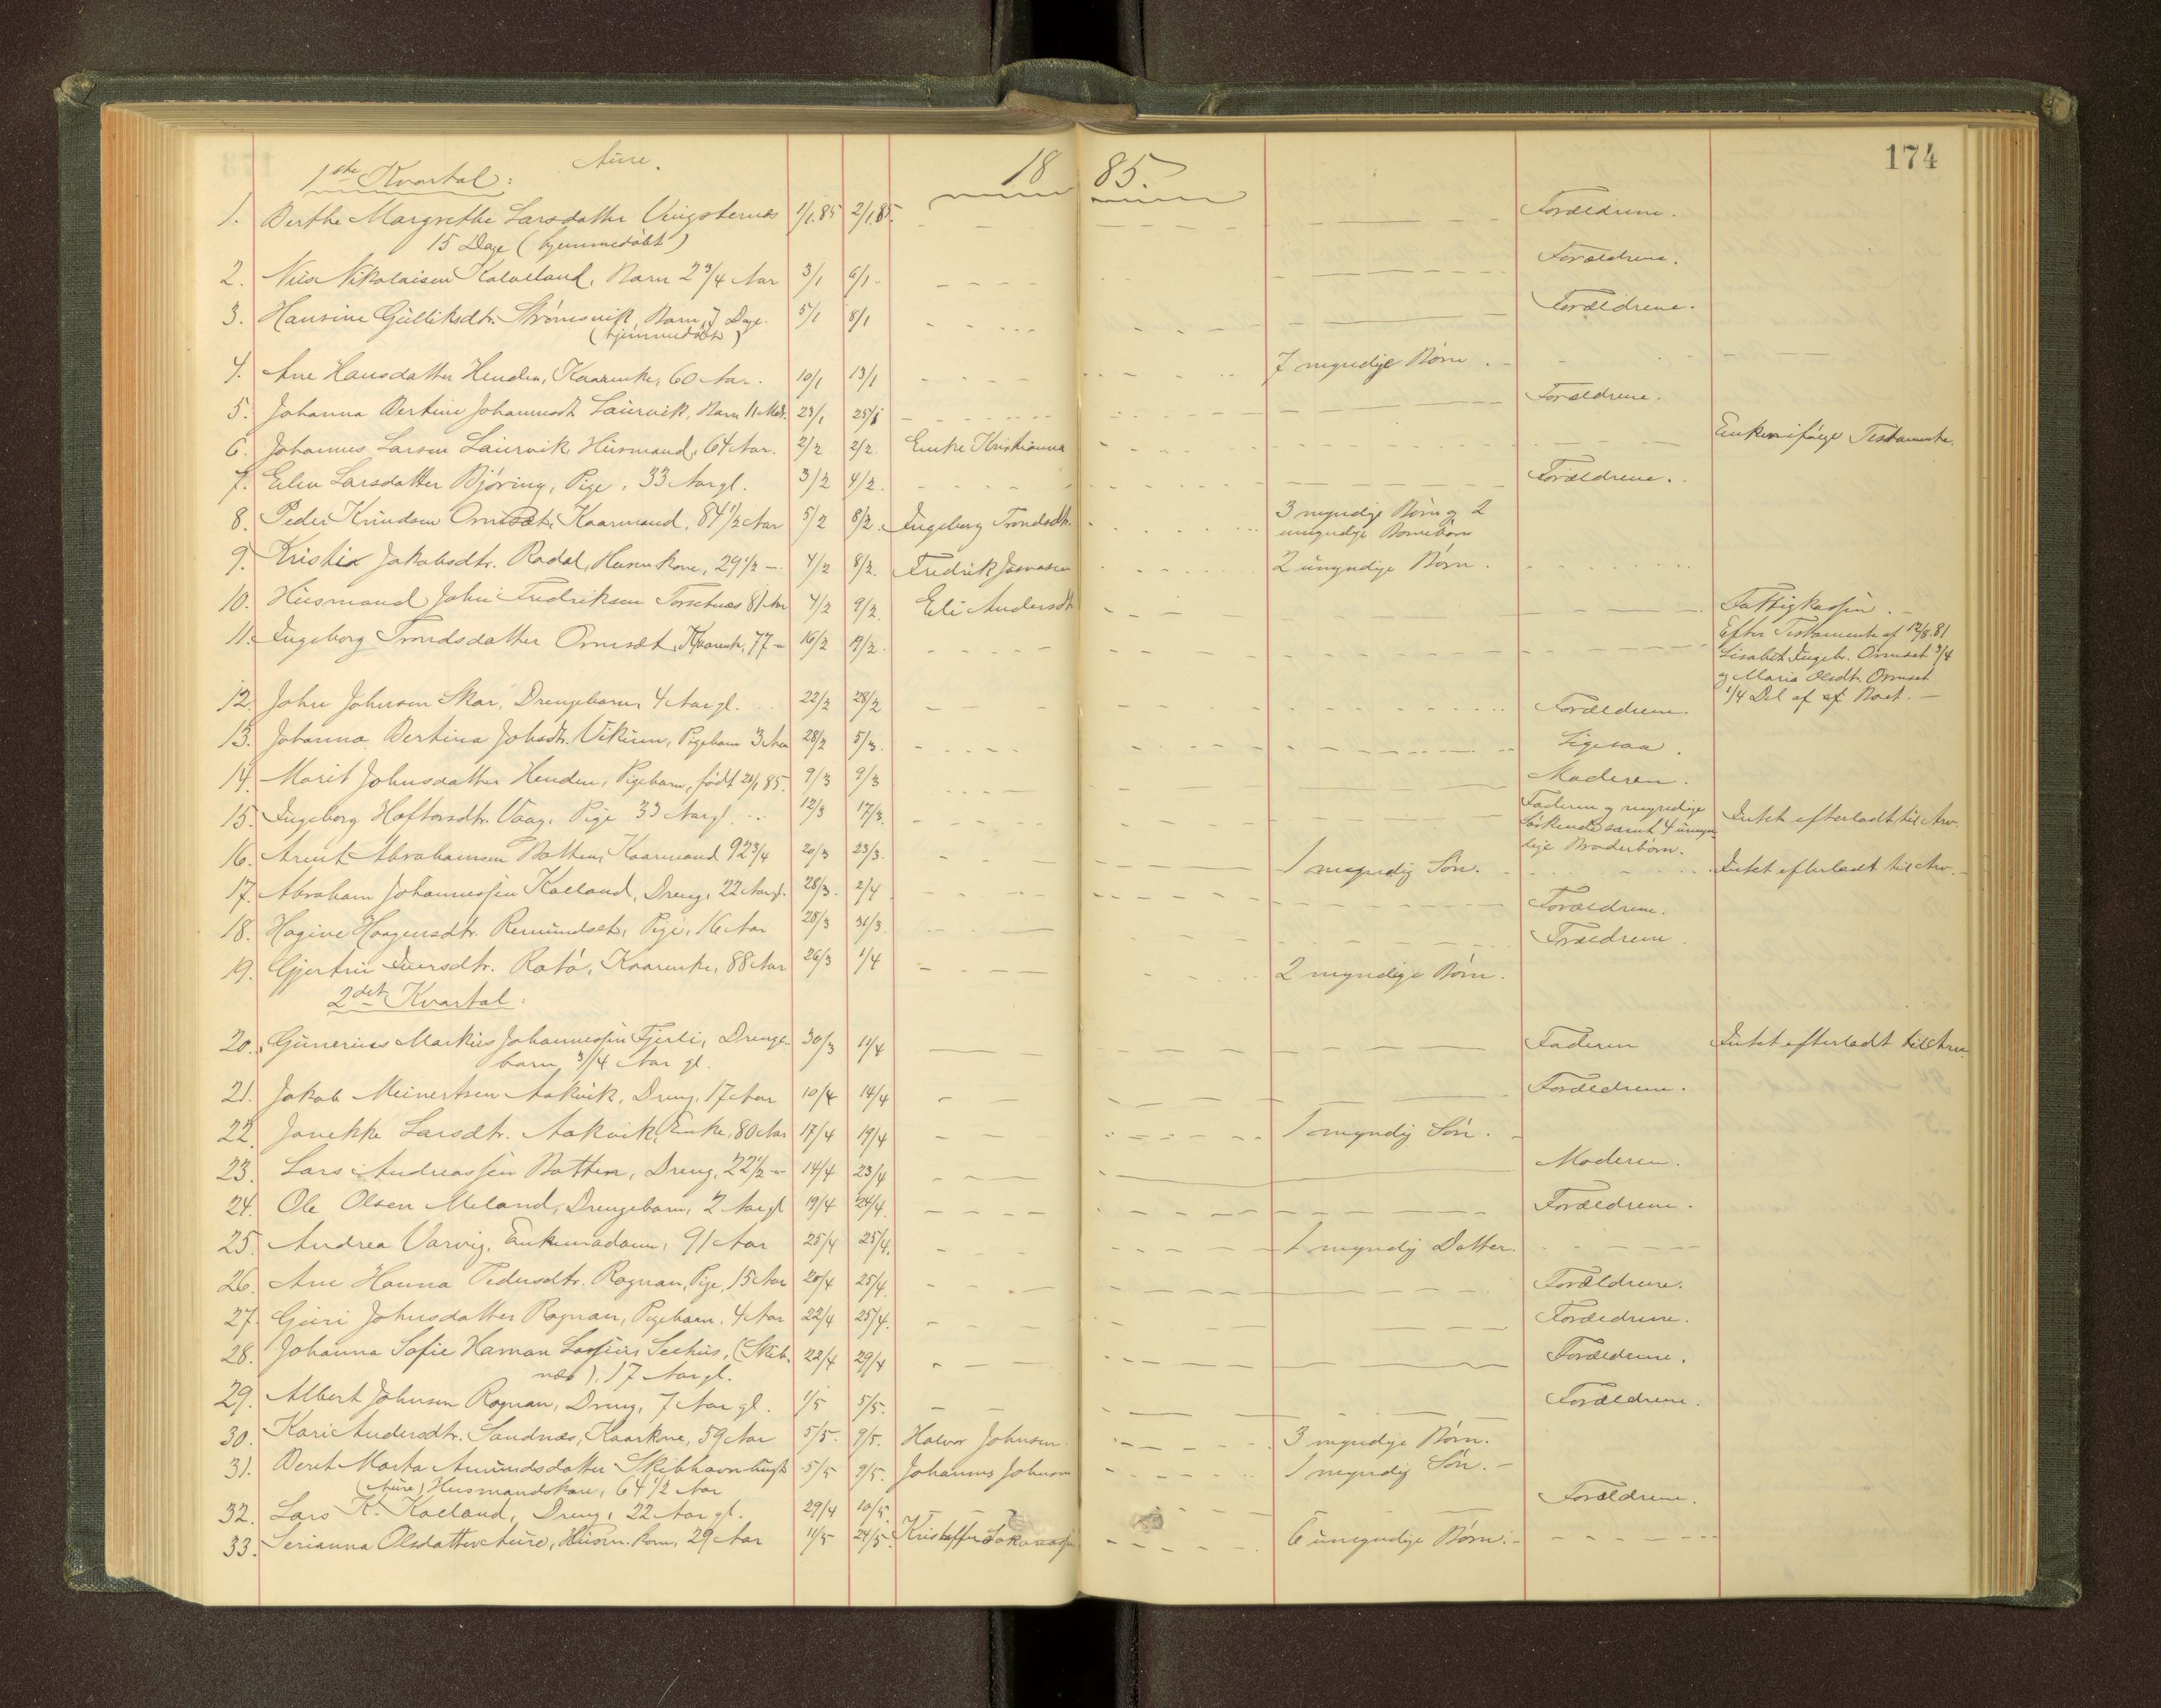 174
Aure.
1ste Kvartal:
1885.
1. Berthe Margrethe Larsdatter Vingsternes 1/1.85 2/1.85. Forældrene.
15 Dage (hjemmedøbt)
2. Nils Nikolaisen Kalvelland, Barn 2 3/4 Aar 3/1 6/1 Forældrene.
3. Hansine Gulliksdtr. Strömsvik Barn, 7 Dage. 5/1 8/1 Forældrene.
(hjemmedøbt)
4. Ane Hansdatter Henden, Kaarenke, 60 Aar. 10/1 13/1 7 myndige Børn.
5. Johanna Bertine Johannesdt Laurvik, Barn 11 Mdr. 23/1 25/1 Forældrene.
6. Johannes Larsen Laurvik, Husmand, 64 Aar. 2/2 2/2 Enke Kristianna Enken ifølge Testamente.
7. Elen Larsdatter Björing, Pige, 33 Aar gl. 3/2 4/2. Forældrene.
8. Peder Knudsen Ormset, Kaarmand, 84 1/2 Aar 5/2 8/2. Ingeborg Trondsdtr. 3 myndige Børn og 2
umyndige Børnebörn
9. Kristine Jakobsdtr. Rodal, Husm.kone, 29 1/2 - 4/2 8/2. Fredrik 2 umyndige Børn.
10. Husmand John Fredriksen Torsetnes 81 Aar 4/2 9/2. Eli Andersdt Fattigkassen.
11. Ingeborg Trondsdatter Ormset, Kaarenk, 77 - 16/2 19/2. Efter Testamente af 12/8.81
Lisabet Ingebr. Ormset 3/4
og Maria Olsdtr. Ormset
1/4 Del af Boet.
12. John Johnsen Skar, Drengebarn, 4 Aar gl. 22/2 28/2 Forældrene.
13. Johanna Bertina Johsdtr. Vikum, Pigebarn 3 Aar 28/2 5/3. Ligesaa.
14. Marit Johnsdatter Henden, Pigebarn, født 21/1 85. 9/3 9/3 Moderen.
15. Ingeborg Haftorsdtr. Vaag, Pige 33 Aar gl. 12/3 17/3. Faderen og myndige Intet efterladt til Arv.
Søskende samt 4 umyn-
dige Broderbørn.
16. Arnt Abrahamsen Botten, Kaarmand 92 3/4 20/3 23/3. 1 myndig Søn. Intet efterladt til Arv.
17. Abraham Johannessen Kalland, Dreng, 22 Aar gl. 28/3. 2/4 Forældrene.
18. Hagine Haagensdtr. Remundset, Pige, 16 Aar 25/3 31/3. Forældrene.
19. Gjertrui Iversdtr. Rotö, Kaarenke, 88 Aar 26/3 1/4 2 myndige Børn.
2det Kvartal:
20. Gunerius Markus Johannessen Fjerli, Drenge- 30/3 11/4 Faderen Intet efterladt til Arv
barn 3/4 Aar gl.
21. Jakob Meinertsen Aakvik, Dreng, 17 Aar 10/4 14/4 Forældrene.
22. Janekke Larsdtr. Aakvik, Enke, 80 Aar 17/4 19/4 1 myndig Søn.
23. Lars Andreassen Botten, Dreng, 22 1/2 - 14/4 23/4 Moderen.
24. Ole Olsen Meland, Drengebarn, 2 Aar gl 19/4 24/4. Forældrene.
25. Andrea Varvig, Enkemadam, 91 Aar 25/4 25/4. 1 myndig Datter.
26. Ane Hanna Pedersdtr. Rognan, Pige, 15 Aar 20/4 25/4. Forældrene.
27. Guri Johnsdatter Rognan, Pigebarn, 4 Aar 22/4 25/4. Forældrene.
28. Johanna Sofie Haman Lossius Seehus, (Skib- 22/4 29/4 Forældrene.
nes). 17 Aar gl.
29. Albert Johnsen Rognan, Dreng, 7 Aar gl. 1/5 5/5. Forældrene.
30. Kari Andersdtr. Sandnes, Kaarkone, 59 Aar 5/5. 9/5. Halvor Johnsen. 3 myndige Børn.
31. Beret Marta Amundsdatter Skibhavn 5/5 9/5. Johannes Johnsen 1 myndig Søn.
(Aure) Husmandskone, 64 1/2 Aar
32. Lars K. Kalland, Dreng, 22 Aar gl. 29/4 10/5. Forældrene.
33. Serianna Olsdatter Aure, Husm.kone, 29 Aar 11/5 24/5. Kristoffer 6 umyndige Børn.